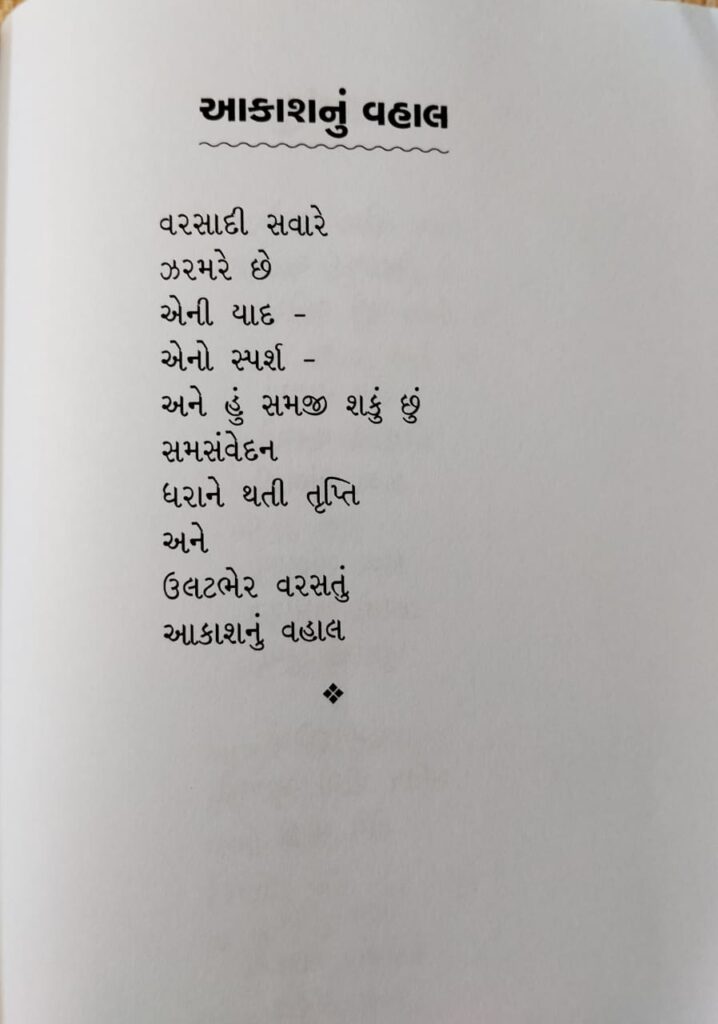 આકાશનું વહાલ
વરસાદી સવારે
ઝરમરે છે
એની યાદ -
એનો સ્પર્શ -
અને હું સમજી શકું છું
સમસંવેદન
ધરાને થતી તૃપ્તિ
અને
ઉલટભેર વરસતું
આકાશનું વહાલ